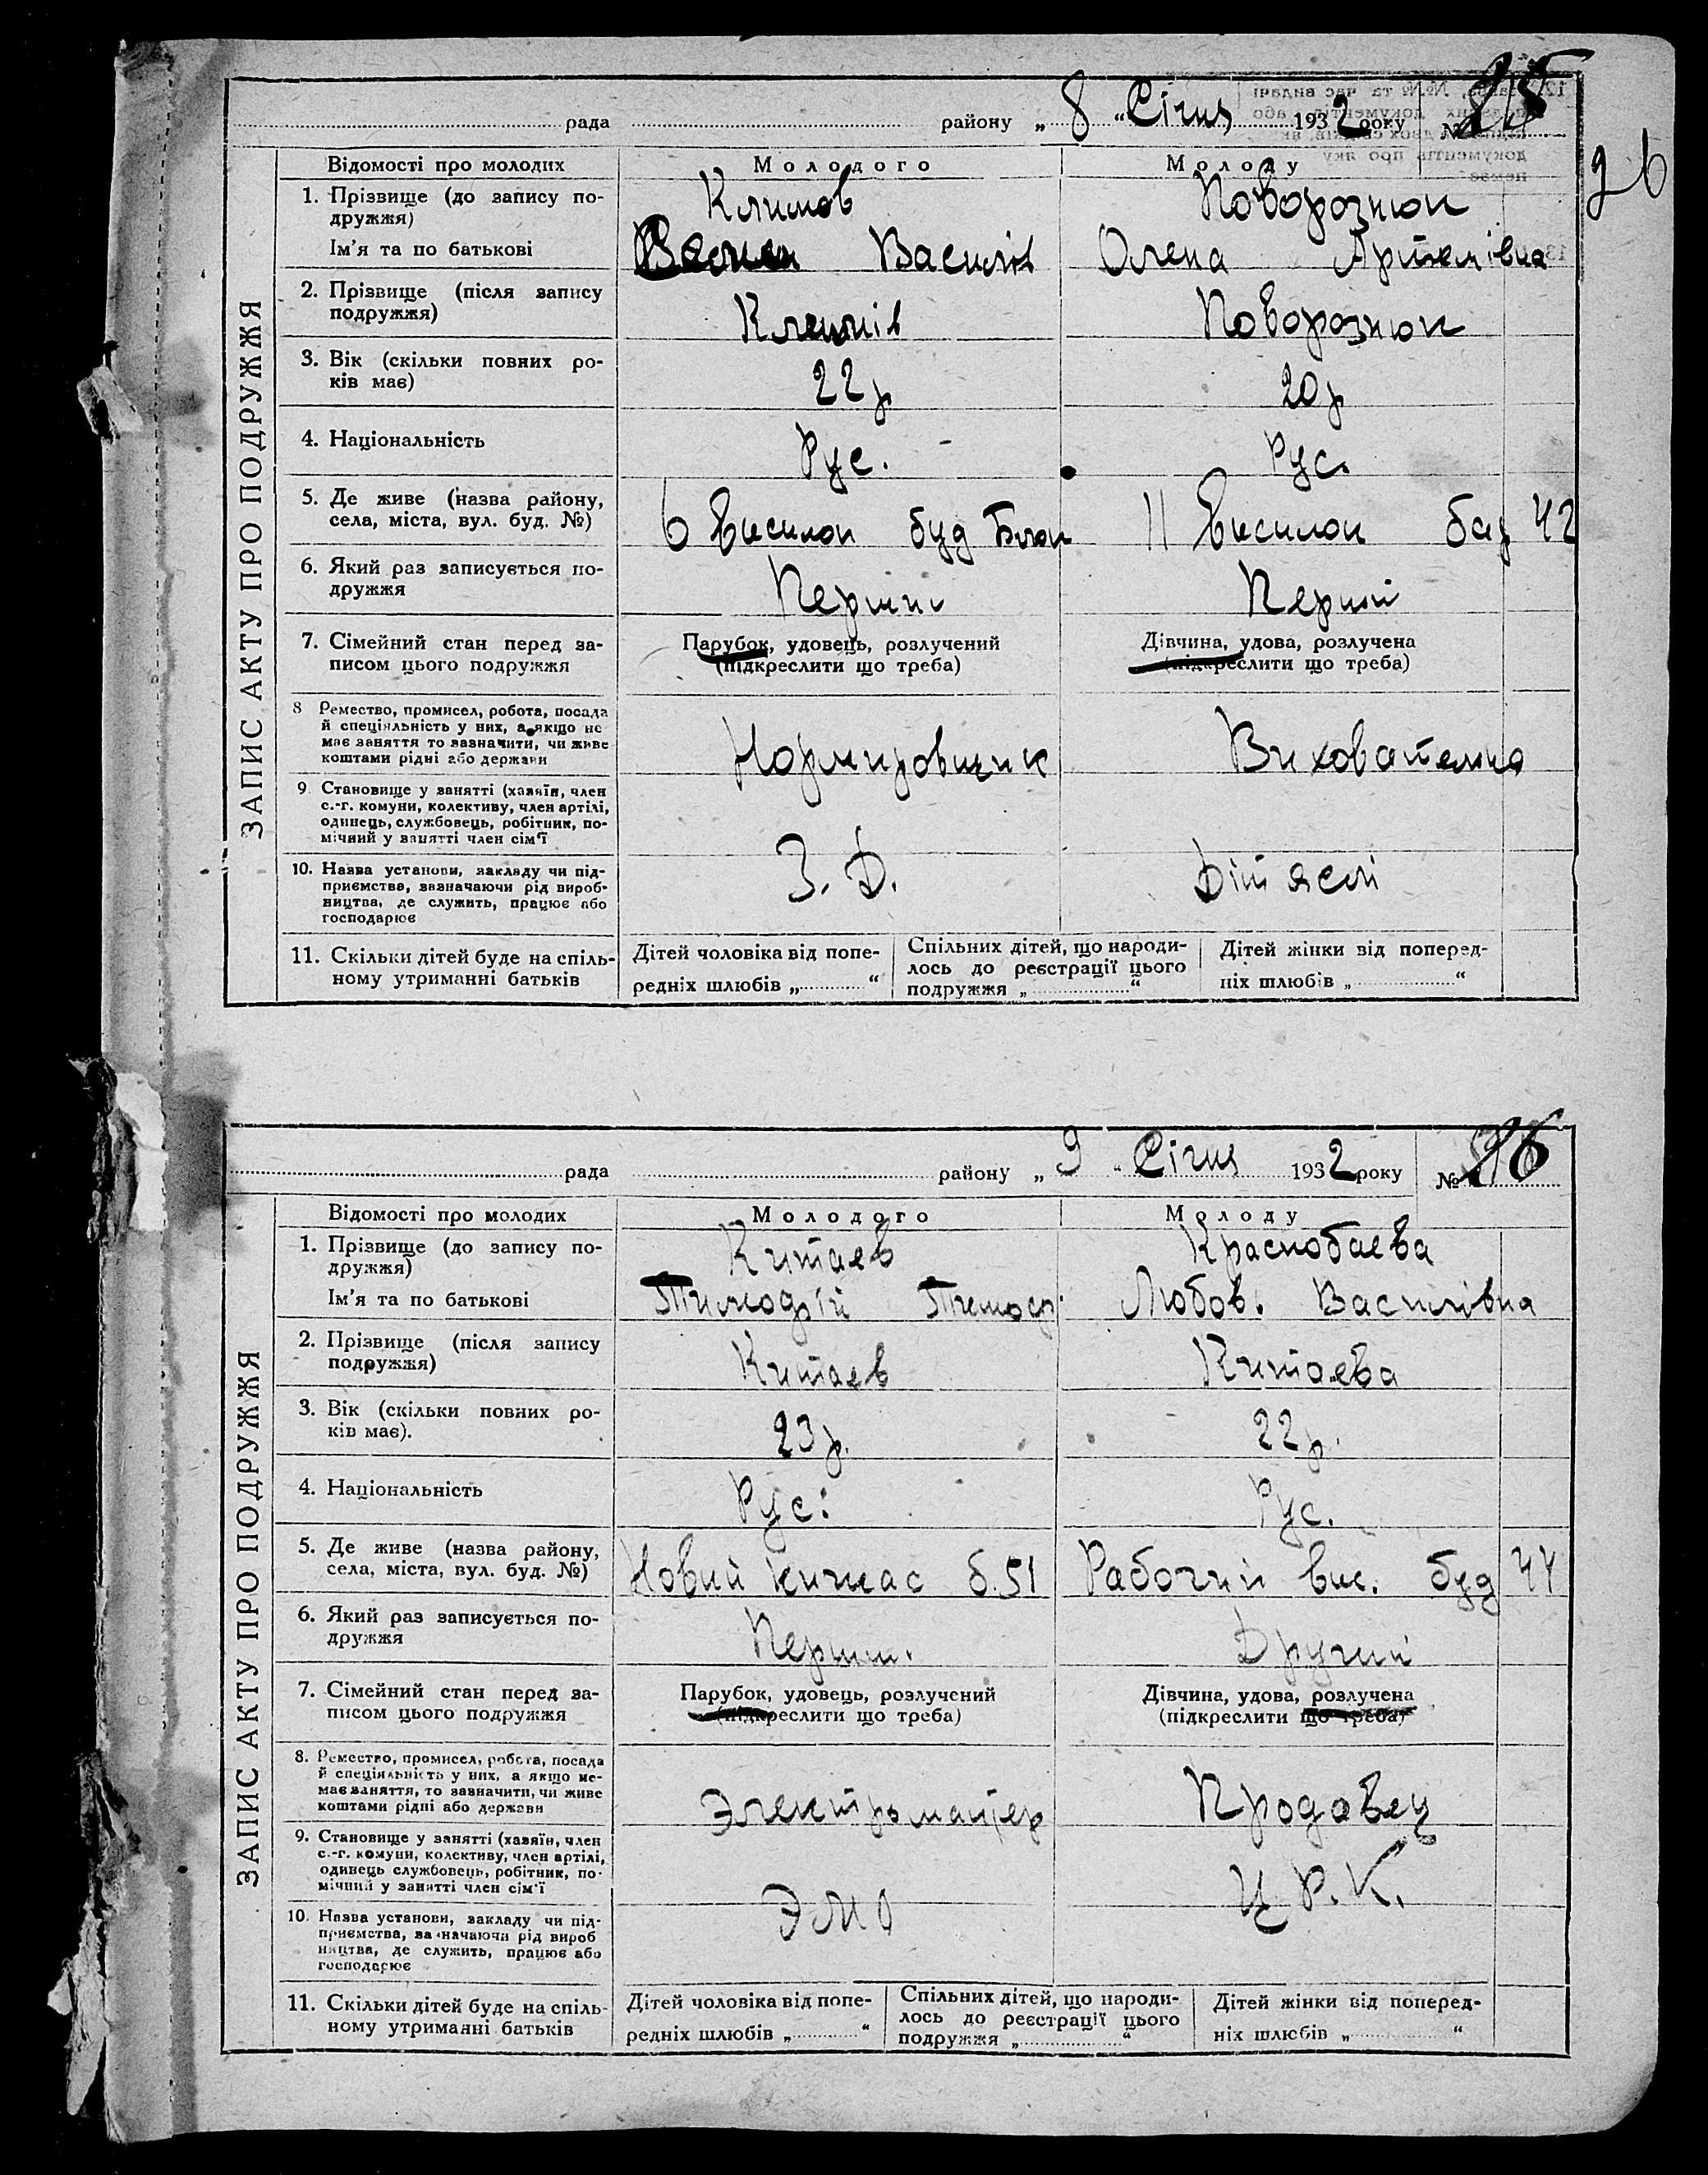 рада району „ 8 “ Січня 1932 року № 25
26
ЗАПИС АКТУ ПРО ПОДРУЖЖЯ
Відомості про молодих Молодого Молоду
1. Прізвище (до запису по-
дружжя) Климов Поворознюк
Ім'я та по батькові Василь Олена Артемівна
2. Прізвище (після запису
подружжя) Климів Поворознюк
3. Вік (скільки повних ро-
ків має) 22 р 20 р
4. Національність Рус. Рус.
5. Де живе (назва району,
села, міста, вул. буд. №) 6 виселок буд Блок 11 виселок 42
6. Який раз записується по-
дружжя Перший Перший
7. Сімейний стан перед за-
писом цього подружжя
Парубок, удовець, розлучений
(підкреслити що треба)
Дівчина, удова, розлучена
(підкреслити що треба)
8 Ремество, промисел, робота, посада
й спеціяльність у них, а якщо не
має заняття то зазначити, чи живе
коштами рідні або держави
Нормировщик Вихователька
9. Становище у занятті (хазяїн, член
с.-г. комуни, колективу, член артілі,
одинець, службовець, робітник, по-
мічний у занятті член сім'ї
10. Назва установи, закладу чи під-
приємства, зазначаючи рід вироб-
ництва, де служить, працює або
господарює
З. Д. Діт яслі
11. Скільки дітей буде на спіль-
ному утриманні батьків
Дітей чоловіка від попе-
редніх шлюбів „ “
Спільних дітей, що народи-
лось до реєстрації цього
подружжя „ “
Дітей жінки від поперед-
ніх шлюбів „ “
рада району „ 9 “ Січня 1932 року № 26
ЗАПИС АКТУ ПРО ПОДРУЖЖЯ
Відомості про молодих Молодого Молоду
1. Прізвище (до запису по-
дружжя) Китаев Краснобаева
Ім'я та по батькові Тимофій Тимоф. Любов. Василівна
2. Прізвище (після запису
подружжя) Китаев Китаева
3. Вік (скільки повних ро-
ків має). 23 р. 22 р.
4. Національність Рус. Рус.
5. Де живе (назва району,
села, міста, вул. буд. №) Новий б. 51 Рабочий вис. буд 44
6. Який раз записується по-
дружжя Перший. Другий
7. Сімейний стан перед за-
писом цього подружжя
Парубок, удовець, розлучений
(підкреслити що треба)
Дівчина, удова, розлучена
(підкреслити що треба)
8. Ремество, промисел, робота, посада
й спеціяльність у них, а якщо не-
має заняття, то зазначити, чи живе
коштами рідні або держави
Электромантер Продавец
9. Становище у занятті (хазяїн, член
с.-г. комуни, колективу, член артілі,
одинець службовець, робітник, по-
мічний у занятті член сім'ї
10. Назва установи, закладу чи під-
приємства, зазначаючи рід вироб
ництва, де служить, працює або
господарює
Ц. Р. К.
11. Скільки дітей буде на спіль-
ному утриманні батьків
Дітей чоловіка від попе-
редніх шлюбів „ “
Спільних дітей, що народи-
лось до реєстрації цього
подружжя „ “
Дітей жінки від поперед-
ніх шлюбів „ “